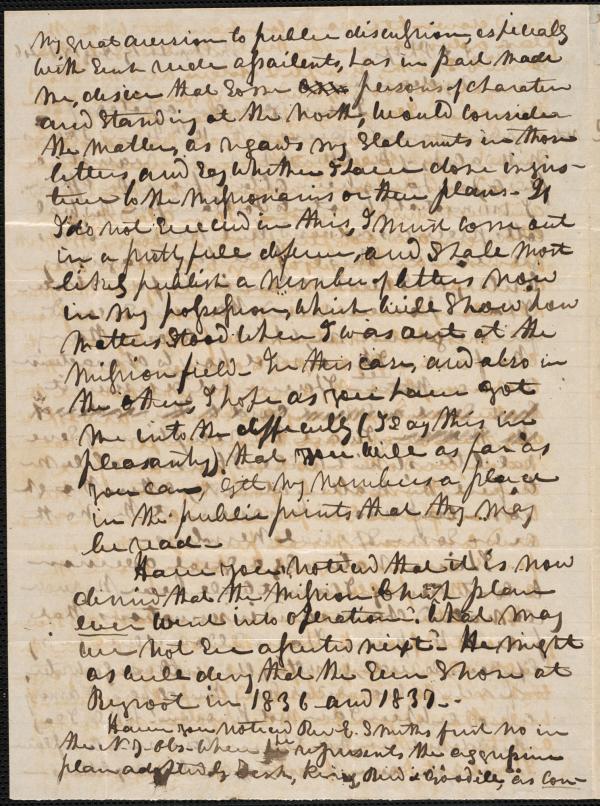 My great aversion to public discussion, especially
with such rude assailents, has in part made
me, desire that some persons of charater
and standing at the North, would consider
the matter, as regards my statements in those
letters, and say whether I have done injus-
tice to the Missionaries or their plans - If
I do not succeed in this, I must come out
in a pretty full defence, and shall most
likely publish a number of letters now
in my possession, which will show how
matters stood when I was out at the
Mission field - In this case, and also in
the other, I hope as you have got
me into the difficulty (I say this in
pleasantry) that you will as far as
you can, gett my numbers a place
in the public prints that thy may
be read -
Have you noticed that it is now
denied that the Mission Church plan
ever went into operation. What may
we not see asserted next - He might
as well deny that the sun shone at
Beyroot in 1836 and 1837 -
Have you noticed Rev E. Smiths first no in
the N Y obs. when he represents the aggressive
plan adopted by Fisk, King, Bird & Goodell, as con-